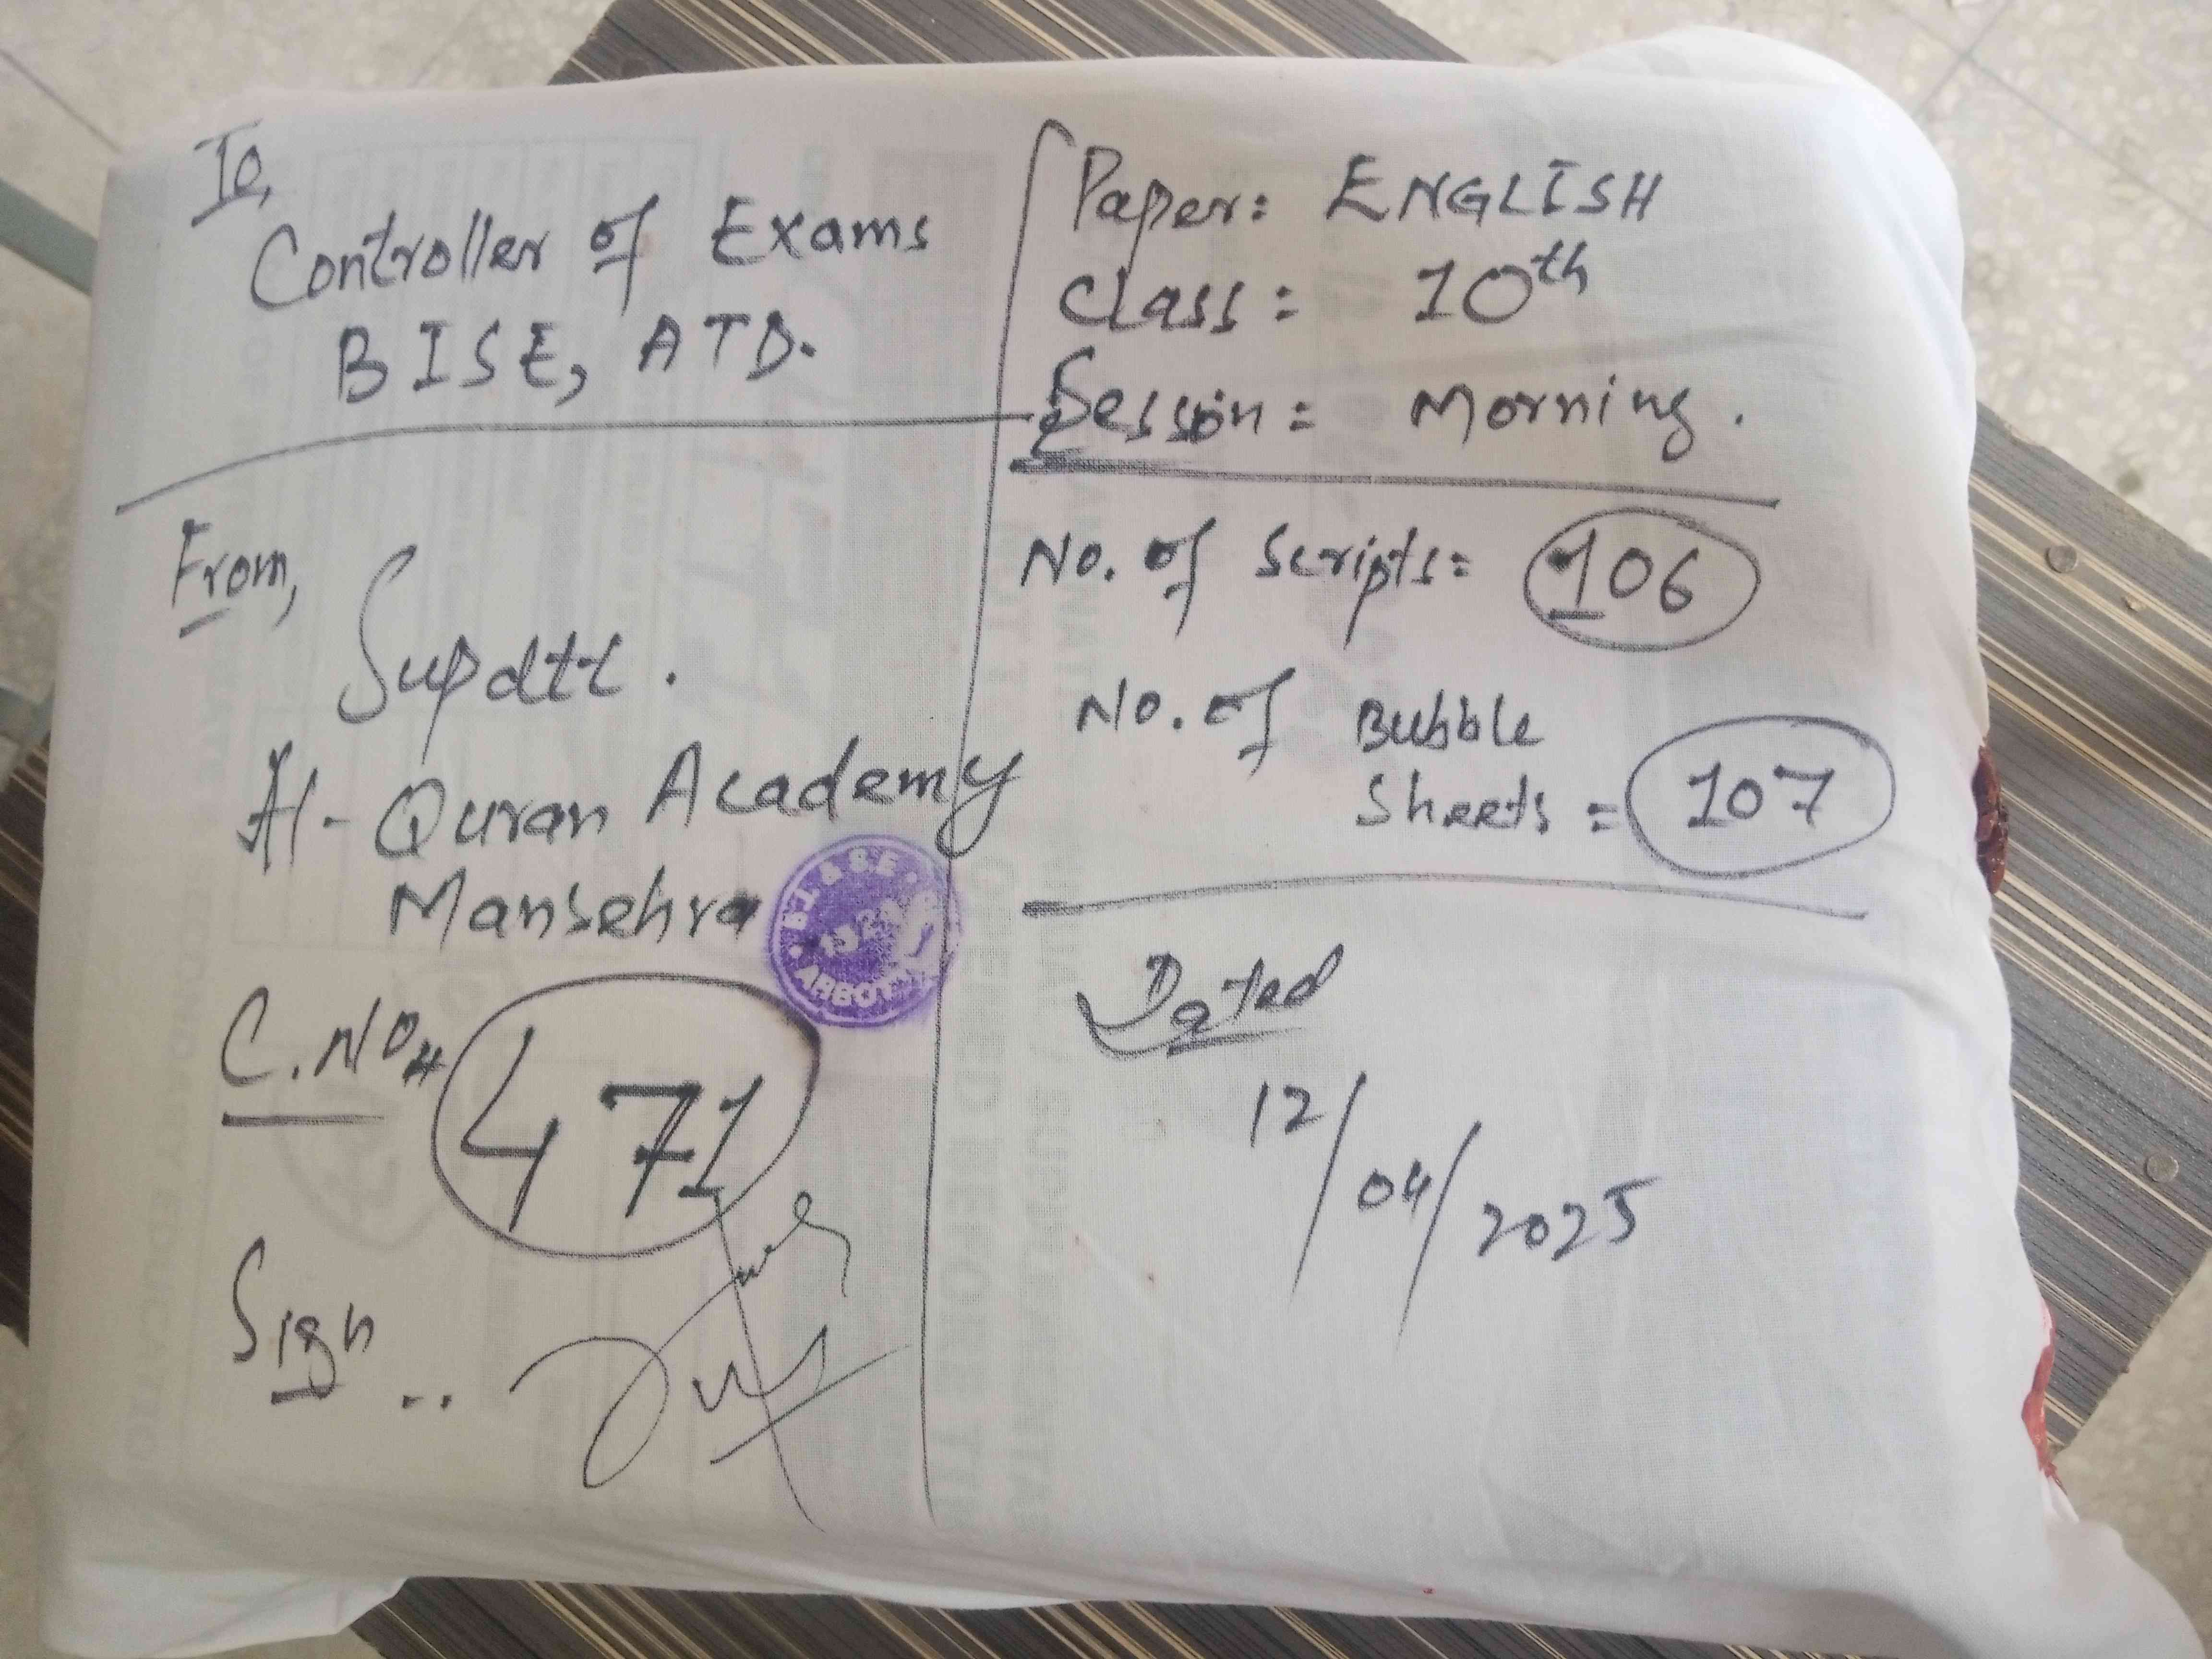 To,
Controller of Exams
BISE, ATD.
From,
Supdtt.
Al-Quran Academy
Mansehra
C.NO#
471
Sign ..
Paper: ENGLISH
Class: 10th
Session: Morning.
No. of Scripts: 106
No. of Bubble
Sheets = 107
Dated
12/04/2025